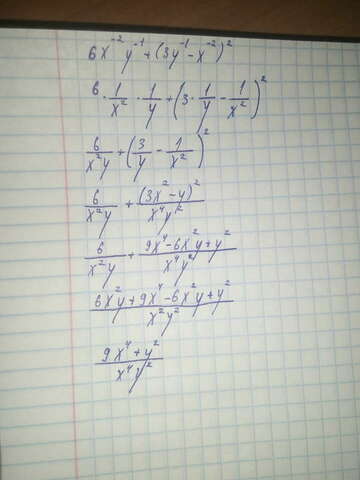 6x⁻²y⁻¹+(3y⁻¹-x⁻²)²
6·1/x²·1/y+(3·1/y-1/x²)²
6/x²y+(3/y-1/x²)²
6/x²y+(3x²-y)²/x⁴y²
6/x²y+9x⁴-6x²y+y²/x⁴y²
6x²y+9x⁴-6x²y+y²/x²y²
9x⁴+y²/x⁴y²